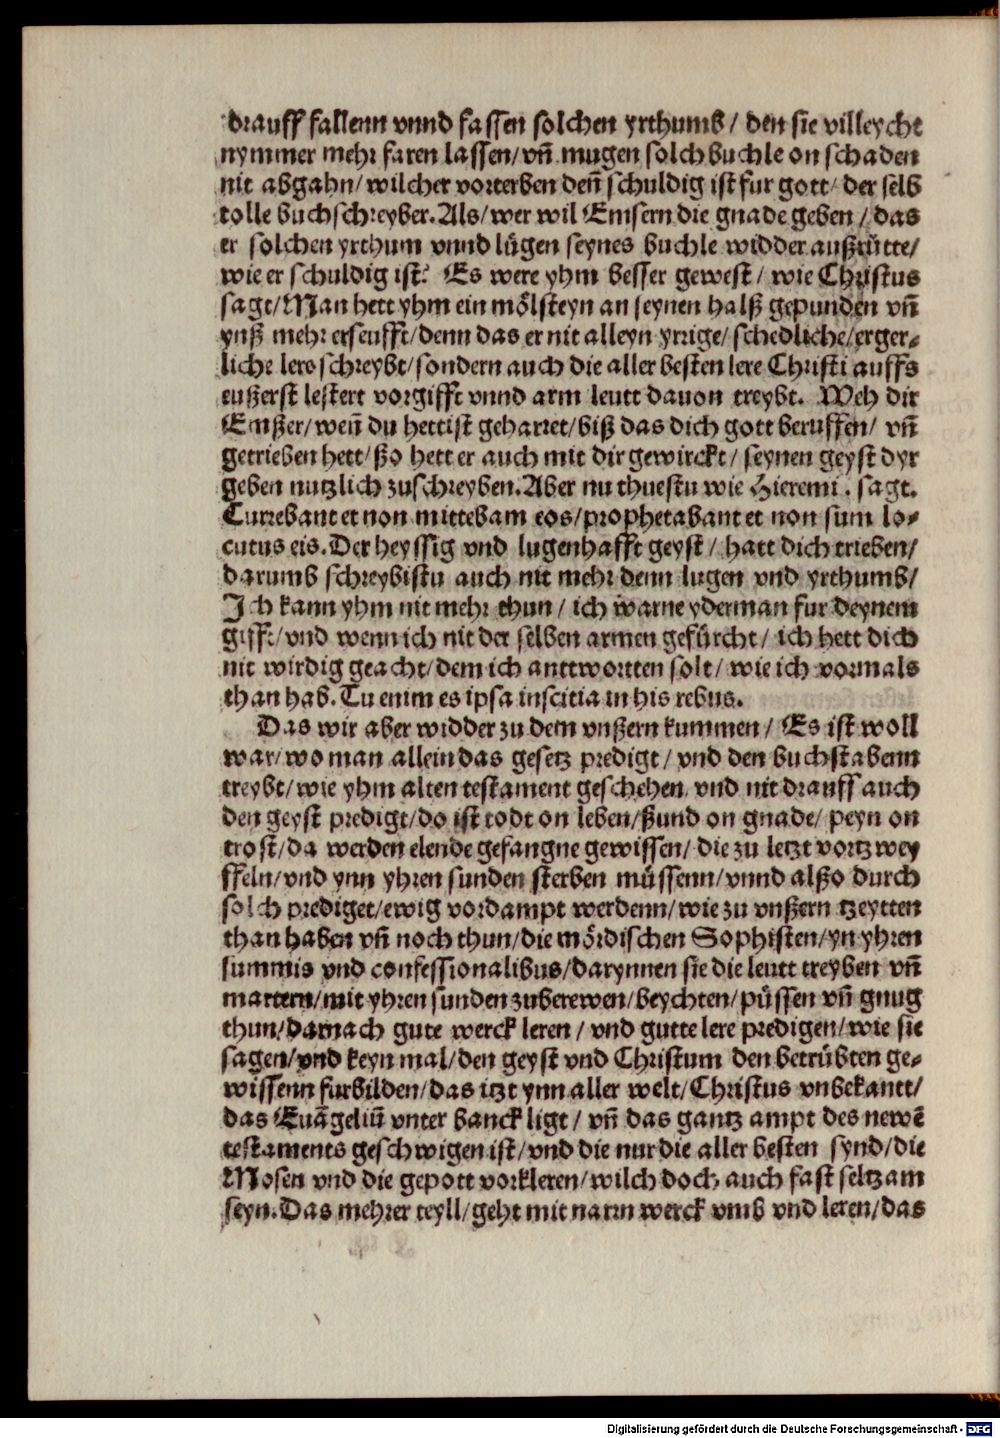 drauff fallenn vnnd fassen solchen yrthumb/ den sie villeycht
nymmer mehr faren lassen/ vñ mugen solch buchle on schaden
nit abgahn/ wilcher vorterben deñ schuldig ist fur gott/ der selb
tolle buchschreyber. Als/ wer wil Emsern die gnade geben/ das
er solchen yrthum vnnd lügen seynes buchle widder außrütte/
wie er schuldig ist? Es were yhm besser gewest/ wie Christus
sagt/ Man hett yhm ein mölsteyn an seynen halß gepunden vñ
ynß mehr erseufft/ denn das er nit alleyn yrrige/ schedliche/ erger⸗
liche lere schreybt/ sondern auch die aller besten lere Christi auffs
eußerst lestert vorgifft vnnd arm leutt dauon treybt. Weh dir
Emßer/ weñ du hettist geharret/ biß das dich gott beruffen/ vñ
getrieben hett/ ßo hett er auch mit dir gewirckt/ seynen geyst dyr
geben nutzlich zuschreyben. Aber nu thuestu wie Hieremi. sagt.
Currebant et non mittebam eos/ prophetabant et non sum lo⸗
cutus eis. Der heyssig vnd lugenhafft geyst/ hatt dich trieben/
darumb schreybistu auch nit mehr denn lugen vnd yrthumb/
Ich kann yhm nit mehr thun/ ich warne yderman fur deynem
gifft/ vnd wenn ich nit der selben armen gefürcht/ ich hett dich
nit wirdig geacht/ dem ich anttwortten solt/ wie ich vormals
than hab. Tu enim es ipsa inscitia in his rebus.
Das wir aber widder zu dem vnßern kummen/ Es ist woll
war/ wo man allein das gesetz predigt/ vnd den buchstabenn
treybt/ wie yhm alten testament geschehen, vnd nit drauff auch
den geyst predigt/ do ist todt on leben/ ßund on gnade/ peyn on
trost/ da werden elende gefangne gewissen/ die zu letzt vortzwey
ffeln/ vnd ynn yhren sunden sterben müssenn/ vnnd alßo durch
solch prediget/ ewig vordampt werdenn/ wie zu vnßern tzeytten
than haben vñ noch thun/ die mördischen Sophisten/ yn yhren
summis vnd confessionalibus/ darynnen sie die leutt treyben vñ
martern/ mit yhren sunden zuberewen/ beychten/ püssen vñ gnug
thun/ darnach gute werck leren/ vnd gutte lere predigen/ wie sie
sagen/ vnd keyn mal/ den geyst vnd Christum den betrübten ge⸗
wissenn furbilden/ das itzt ynn aller welt/ Christus vnbekantt/
das Euãgeliũ vnter banck ligt/ vñ das gantz ampt des newẽ
testaments geschwigen ist/ vnd die nur die aller besten synd/ die
Mosen vnd die gepott vorkleren/ wilch doch auch fast seltzam
seyn. Das mehrer teyll/ geht mit narrn werck vmb vnd leren/ das
Digitalisierung gefördert durch die Deutsche Forschungsgemeinschaft - DFG